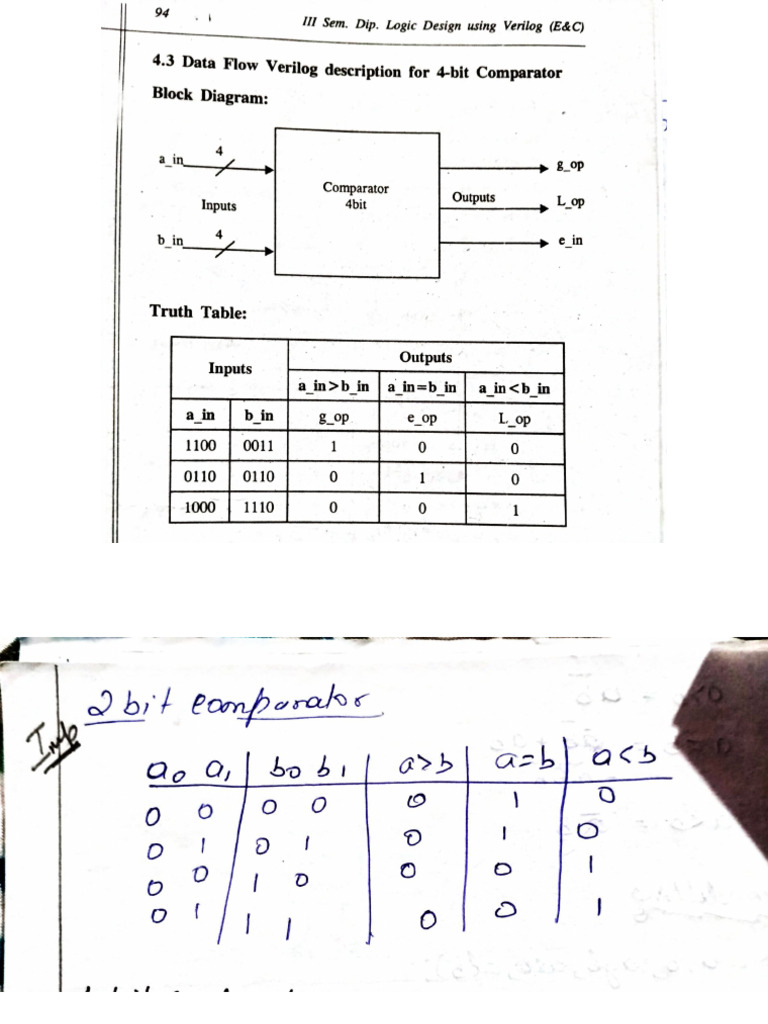 94
III Sem. Dip. Logic Design using Verilog (E&C)
4.3 Data Flow Verilog description for 4-bit Comparator
Block Diagram:
a_in 4 g_op
Comparator
4bit
Inputs Outputs L_op
b_in 4 e_in
Truth Table:
Inputs Outputs
a_in>b_in a_in=b_in a_in<b_in
a_in b_in g_op e_op L_op
1100 0011 1 0 0
0110 0110 0 1 0
1000 1110 0 0 1
Imp
2 bit comparator
a0 a1 b0 b1 a>b a=b a<b
0 0 0 0 0 1 0
0 1 0 1 0 1 0
0 0 1 0 0 0 1
0 1 1 1 0 0 1